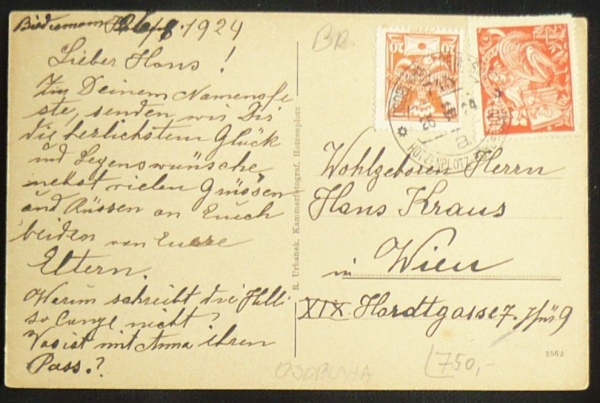 26/8. 1924
Lieber Hans!
Zu Deinem Namensfe
ste, senden wir Dir
die herlichstem Glück
und Segenswünsche
nebst vielen Grüssen
und Küssen an Euch
beiden von Euere
Eltern.
Warum schreibt die Hilli
so lange nicht?
Was ist mit Anna ihren
Pass.?
R. Urbanek, Kammerfotograf, Hotzenplotz
BR.
HOTZENPLOTZ
Wohlgeboren Herrn
Hans Kraus
in Wien
XIX Hardtgasse 7. Thür 9
3562
OSOBLAHA
750,-